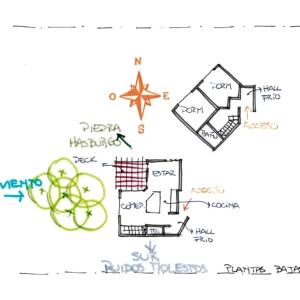 N
O E
S
DORM
DORM
HALL
FRIO
BAÑO
ACCESO
PIEDRA
HASBURGO
DECK
ESTAR
VIENTO
ACCESO
COMED
COCINA
HALL
FRIO
SUR
RUIDOS MOLESTOS
PLANTAS BAJAS